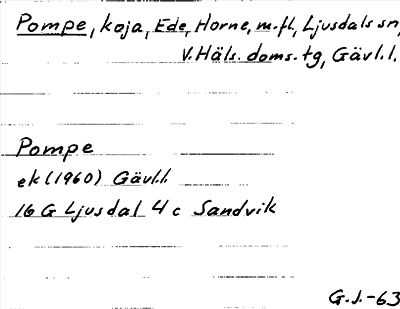 Pompe, koja, Ede, Horne, m.fl., Ljusdals sn,
V. Häls. doms. tg, Gävl.l.
Pompe
ek (1960) Gävl.l.
16 G Ljusdal 4 c Sandvik
G.J.-63